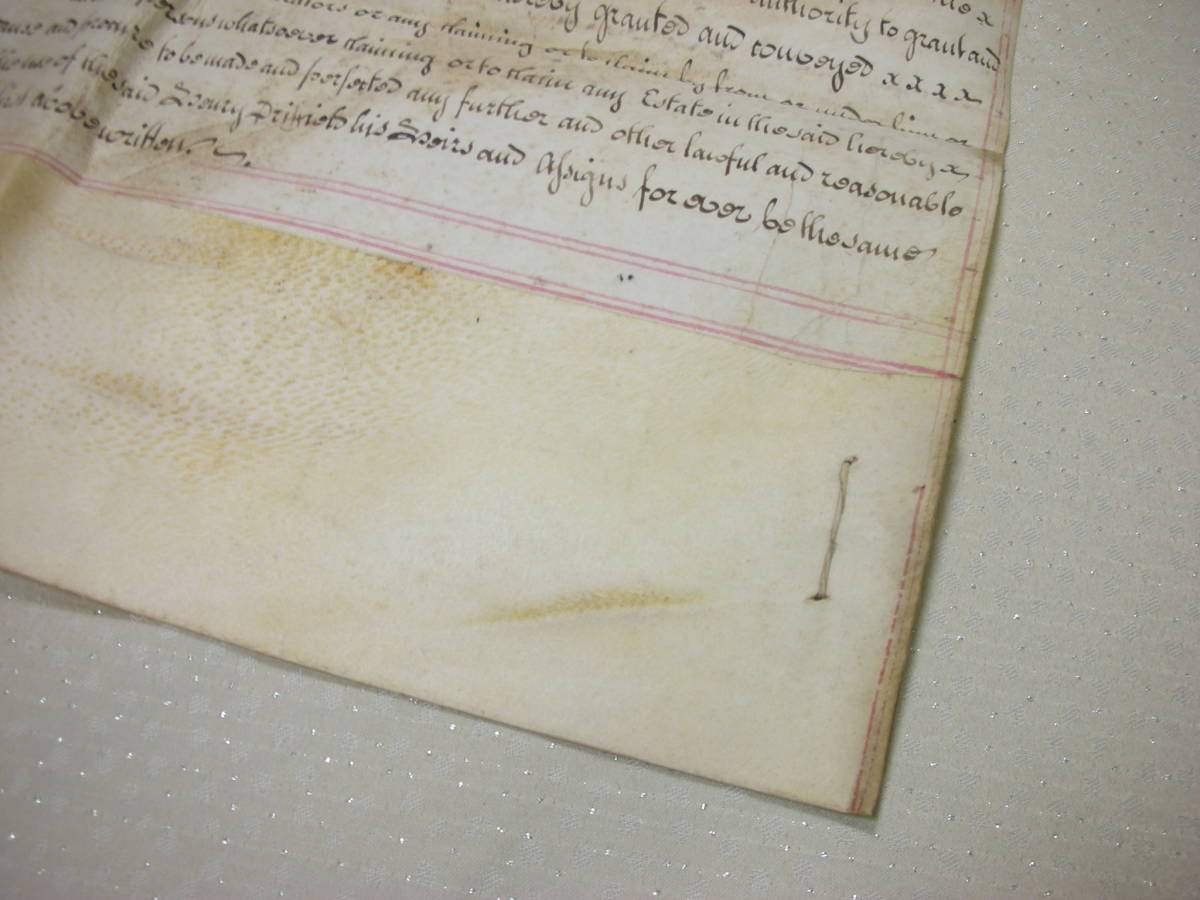 authority to grant and
hereby granted and conveyed x x x x
or any claiming or to claim by from or under him or
whatsoever claiming or to claim any Estate in the said hereby x
and procure to be made and perfected any further and other lawful and reasonable
use of the said Henry his Heirs and Assigns for ever be the same
above written